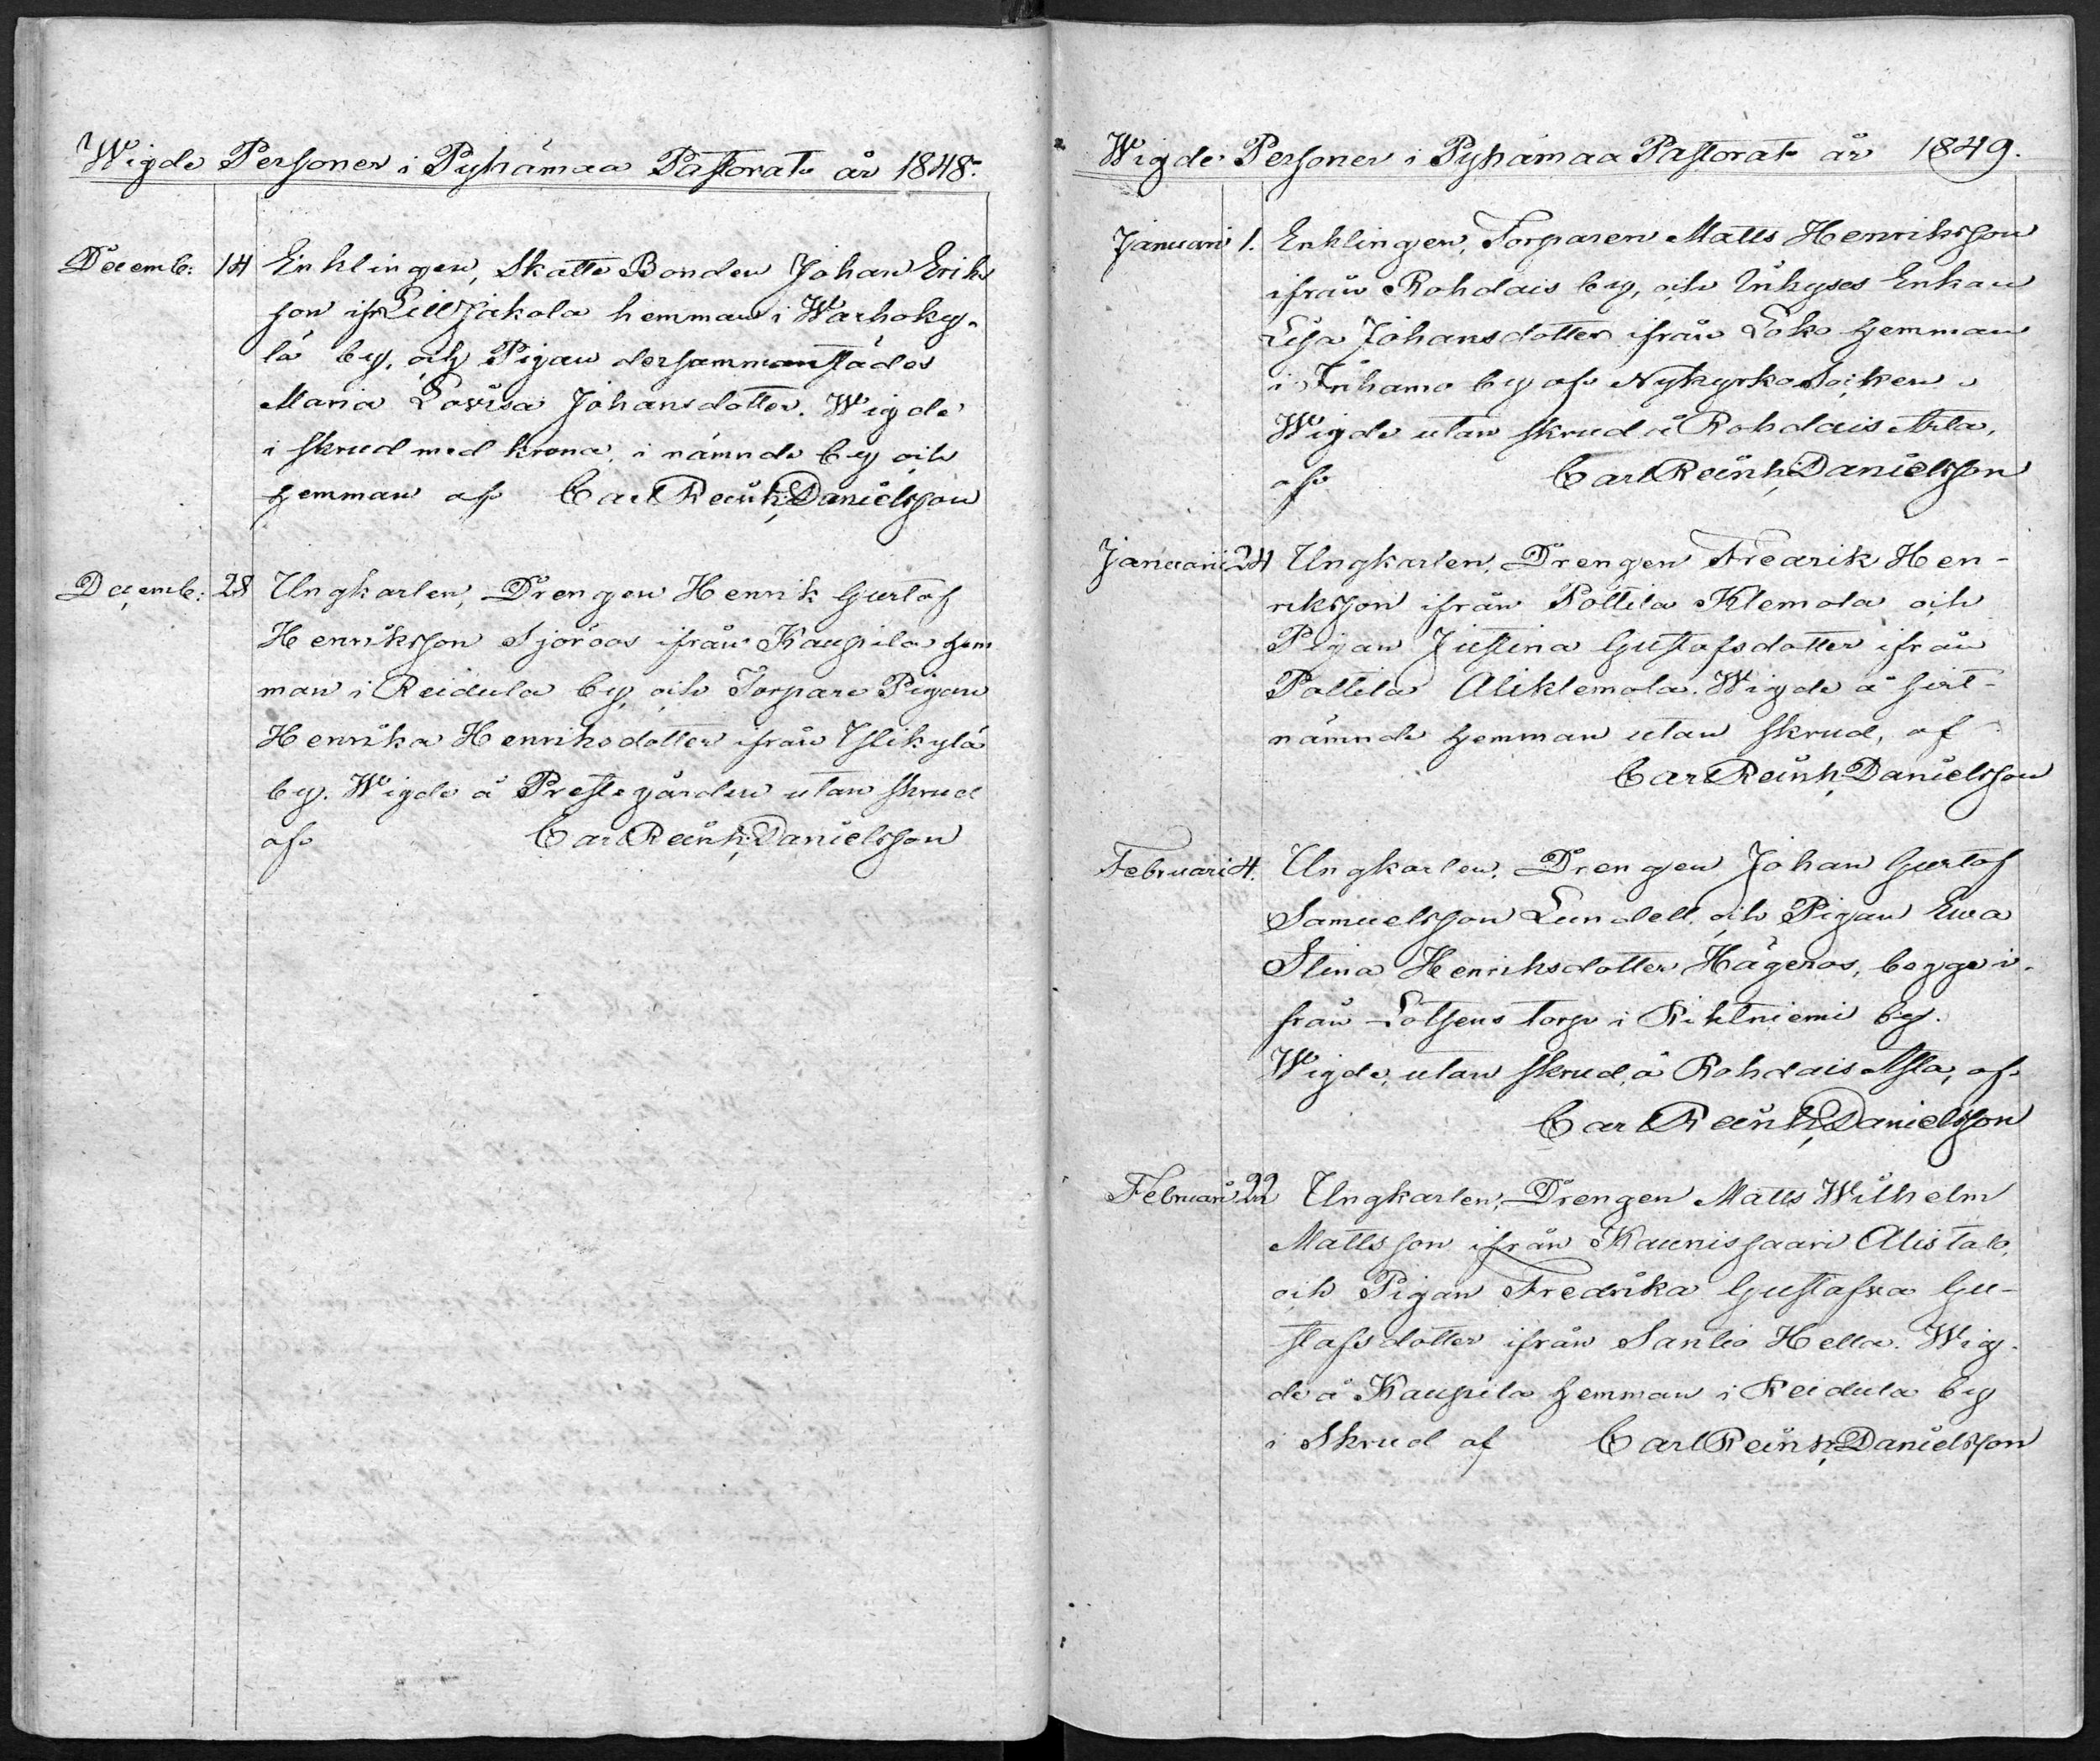 Wigde Personer i Pyhämaa Pastorat år 1848.
Decemb: 14 Enklingen, Skatte Bonden Johan Eriks
son ifr Lill Jakola hemman i Warhoky-
lä by, och Pigan dersammanstädes
Maria Lovisa Johansdotter. Wigde
i skrud med krona, i nämnde by och
hemman af Carl Reinh: Danielsson
Decemb: 28 Ungkarlen, Drengen Henrik Gustaf
Henriksson Sjöroos ifrån Kaupila hem
man i Reidula by, och Torpare Pigan
Henrika Henriksdotter ifrån Yslikylä
by. Wigde å Prestegården utan skrud
af Carl Reinh: Danielsson
Wigde Personer i Pyhämaa Pastorat år 1849.
Januari 1. Enklingen, Torparen Matts Henriksson
ifrån Rohdais by, och Inhyses Enkan
Lisa Johansdotter ifrån Loko hemman
i Trihamo by af Nykyrko Socken
Wigde utan skrud å Rohdais
af Carl Reinh: Danielsson
Januarii 24 Ungkarlen, Drengen Fredrik Hen-
riksson ifrån Pottila Klemola och
Pigan Justina Gustafsdotter ifrån
Pottila Aliklemola. Wigde å sist-
nämnde hemman utan skrud, af
Carl Reinh: Danielsson
Februari 4. Ungkarlen, Drengen Johan Gustaf
Samuelsson Lundell, och Pigan Ewa
Stina Henriksdotter Hägeros, begge i-
från Lotsens torp i Rihtniemi by.
Wigde, utan skrud, å Rohdais, af
Carl Reinh: Danielsson
Februari 22 Ungkarlen, Drengen Matts Wilhelm
Mattsson ifrån Kaunissaari Alistalo,
och Pigan Fredrika Gustafva Gu-
stafsdotter ifrån Santio Hella. Wig-
de å Kaupila hemman i Reidula by
i Skrud af Carl Reinh: Danielsson